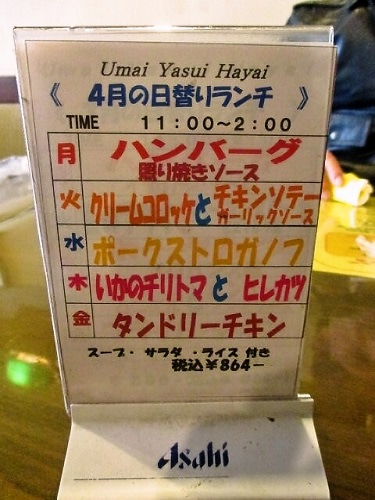 Umai Yasui Hayai
《 4月の日替りランチ 》
TIME 11:00～2:00
月 ハンバーグ
照り焼きソース
火 クリームコロッケと チキンソテー
ガーリックソース
水 ポークストロガノフ
木 いかのチリトマと ヒレカツ
金 タンドリーチキン
スープ・サラダ・ライス付き
税込¥864-
Asahi